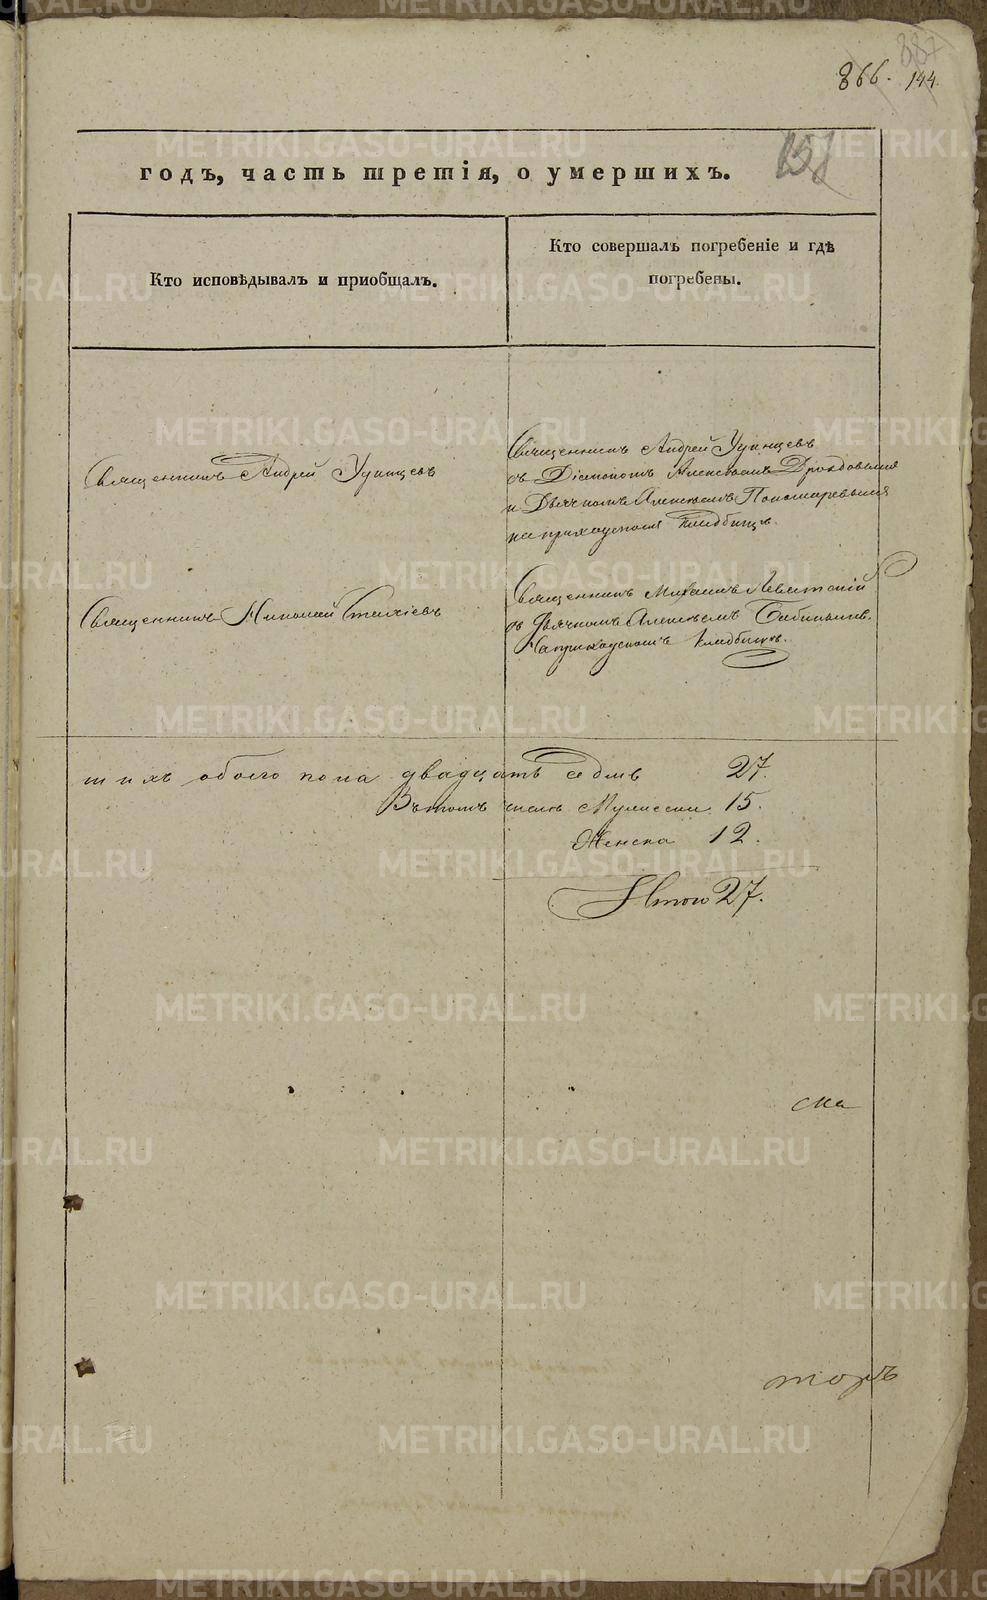 887
866. 144.
годъ, часть третія, о умершихъ.
Кто исповѣдывалъ и приобщалъ.
Кто совершалъ погребеніе и гдѣ
погребены.
Священникъ Андрей Удинцевъ
Священникъ Андрей Удинцевъ
съ Діакономъ Алексѣемъ Дроздовымъ
и Дьячкомъ Алексѣемъ Пономаревымъ
на приходскомъ кладбищѣ.
Священникъ Николай Стахіевъ
Священникъ Михаилъ Левитскій
съ Дьячкомъ Алексѣемъ Бабинымъ.
На приходскомъ кладбищѣ.
шихъ обоего пола двадцать седмь 27.
Въ томъ числѣ Мужеска 15.
Женска 12.
Итого 27.
METRIKI.GASO-URAL.RU